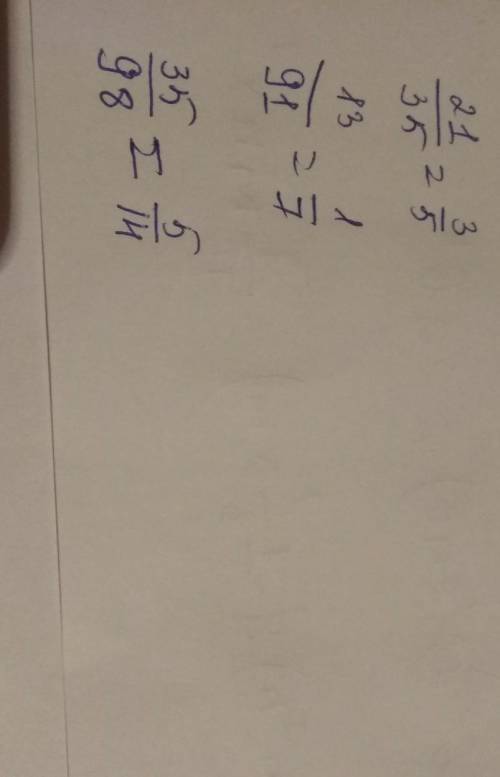 21/35 = 3/5
13/91 = 1/7
35/98 = 5/14